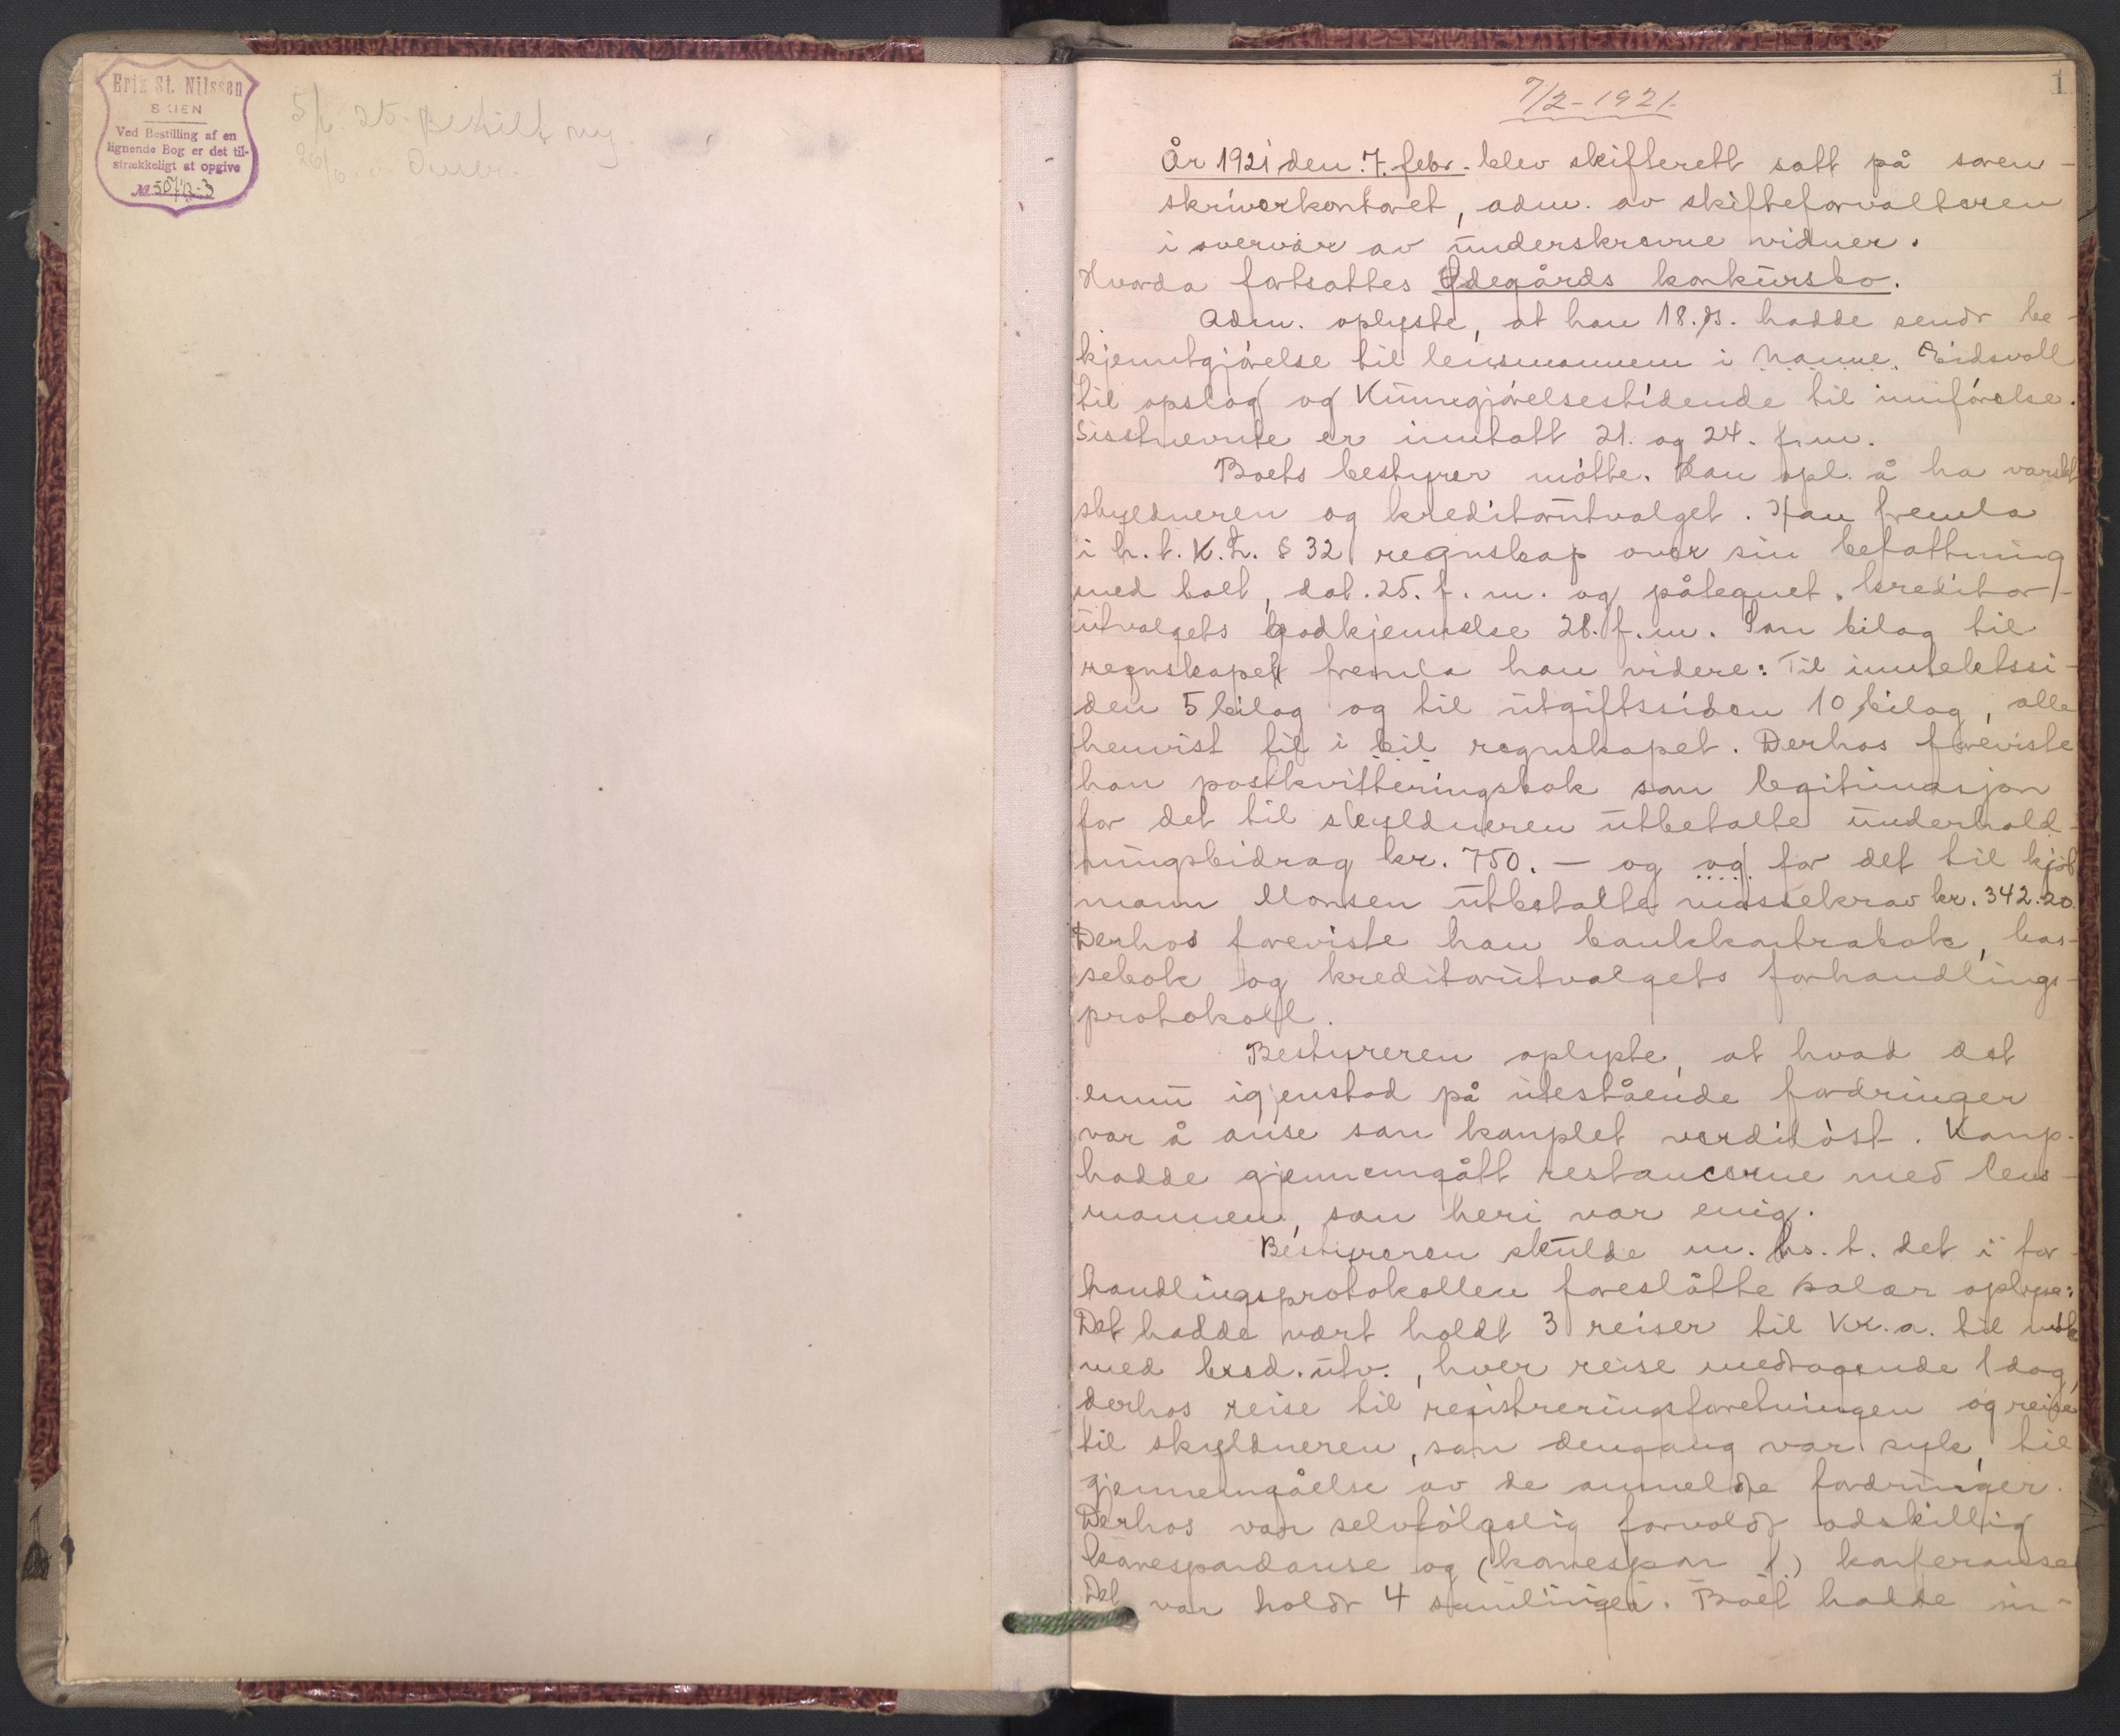 Erik St. Nilssen
SKIEN
Ved Bestilling af en
lignende Bog er det til-
strækkeligt at opgive
No 507/12-3
25. Bestilt ny.
1
7/2-1921.
År 1921 den 7. febr. blev skifterett satt på soren-
skriverkontoret, adm. av skifteforvalteren
i overvær av underskrevne vidner.
Hvorda fortsattes Ødegårds konkursbo.
Adm. oplyste, at han 18. hadde sendt be-
kjenntgjørelse til lensmannen i Nanne. Eidsvoll
til opslag og Kunngjørelsestidende til innførelse.
Sisstnevnte er inntatt 21. og 24. f.m.
Boets bestyrer møtte. Han opl. å ha varslet
skyldneren og kreditorutvalget. Han fremla
i h.t. K.L. § 32 regnskap over sin befattning
med boet, dat. 25. f.m. og påtegnet kreditor-
utvalgets godkjennelse 28. f.m. Som bilag til
regnskapet fremla han videre: Til inntektssi-
den 5 bilag og til utgiftssiden 10 bilag, alle
henvist til i bil regnskapet. Derhos foreviste
han postkvitteringsbok som legitimasjon
for det til skyldneren utbetalte underhold-
ningsbidrag kr. 750.- og og for det til kjøb
mann Monsen utbetalte massekrav kr. 342.20.
Derhos foreviste han bankkontrabok, kas-
sebok og kreditorutvalgets forhandlings-
protokoll.
Bestyreren oplyste, at hvad det
ennu igjenstod på utestående fordringer
var å anse som komplet verdiløst. Komp.
hadde gjennemgått restancerne med lens-
mannen, som heri var enig.
Bestyreren skulde m. hs. t. det i for-
handlingsprotokollen foreslåtte salær oplyse:
Det hadde vært holdt 3 reiser til Kr.a. til møte
med kred.utv., hver reise medtagende 1 dag,
derhos reise til registreringsforetningen og reise
til skyldneren, som dengang var syk, til
gjennemgåelse av de anmeldte fordringer.
Derhos var selvfølgelig forvoldt adskillig
korrespondanse og (korrespon f.) konferanser
Det var holdt 4 samlinger. Boet hadde in-